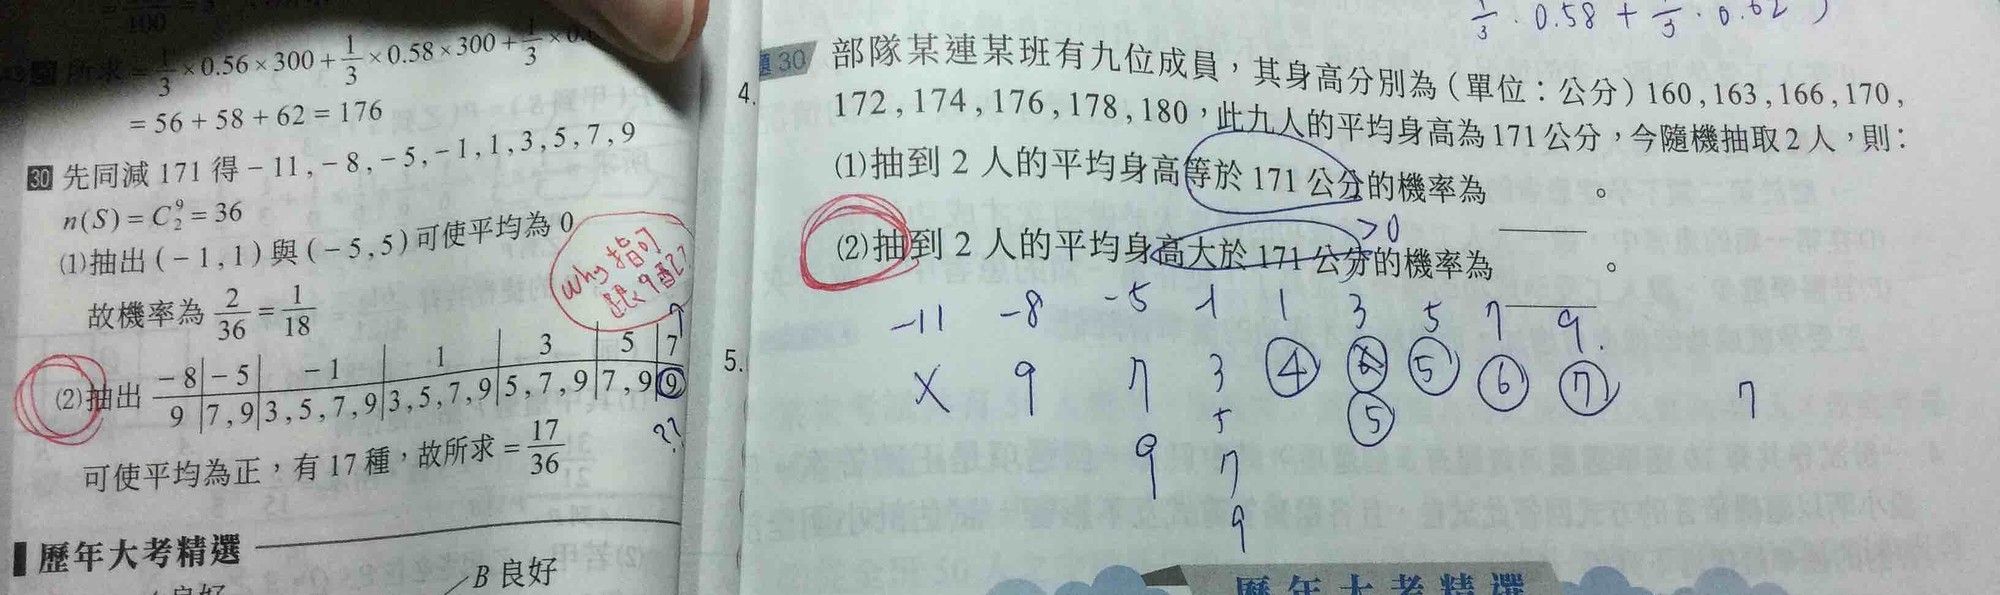 所求=1/3×0.56×300+1/3×0.58×300+1/3×0.
=56+58+62=176
30 先同減171得-11,-8,-5,-1,1,3,5,7,9
n(S)=C⁹₂=36
(1)抽出(-1,1)與(-5,5)可使平均為0
故機率為2/36=1/18
why 指可
跟9配?
(2)抽出 -8|-5|-1|1|3|5|7
9|7,9|3,5,7,9|3,5,7,9|5,7,9|7,9|9
??
可使平均為正,有17種,故所求=17/36
歷年大考精選
B 良好
1/3·0.58+1/3·0.62)
題30
4.
部隊某連某班有九位成員,其身高分別為(單位:公分)160,163,166,170,
172,174,176,178,180,此九人的平均身高為171公分,今隨機抽取2人,則:
(1)抽到2人的平均身高等於171公分的機率為 。
>0
(2)抽到2人的平均身高大於171公分的機率為 。
-11 -8 -5 -1 1 3 5 7 9.
5.
X 9 7 3 4 5 6 7 7
5 5
9 7
9
歷年大考精選